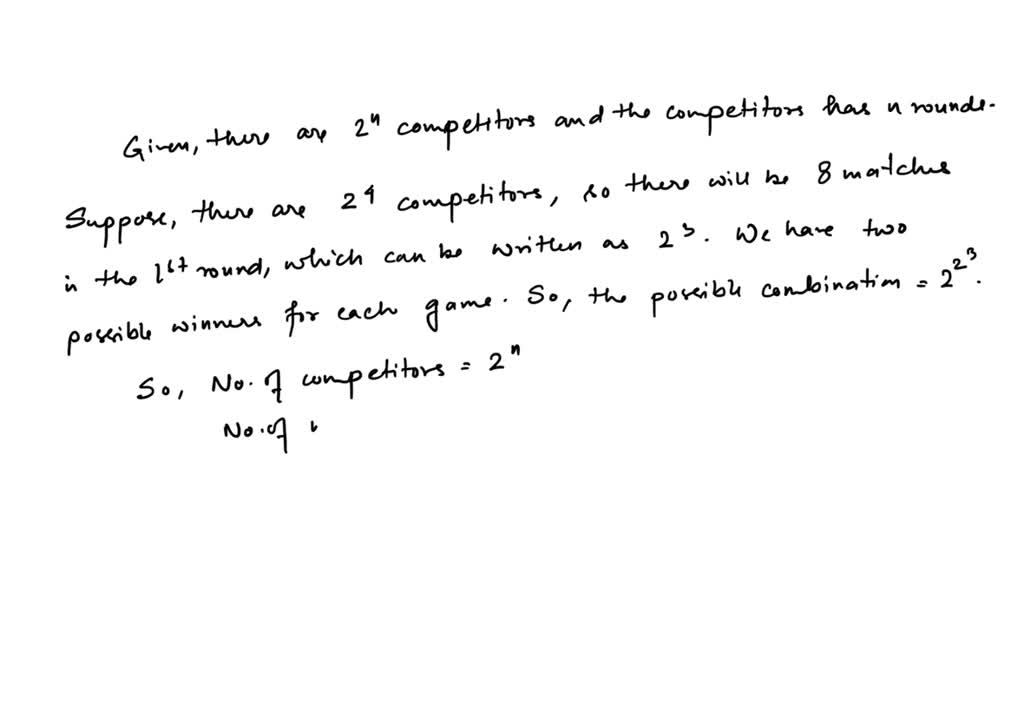 Given, there are 2ⁿ competitors and the competitors has n rounds.
Suppose, there are 2⁴ competitors, so there will be 8 matches
in the 1st round, which can be written as 2³. We have two
possible winners for each game. So, the possible combination = 2^2^3.
So, No. of competitors = 2ⁿ
No. of